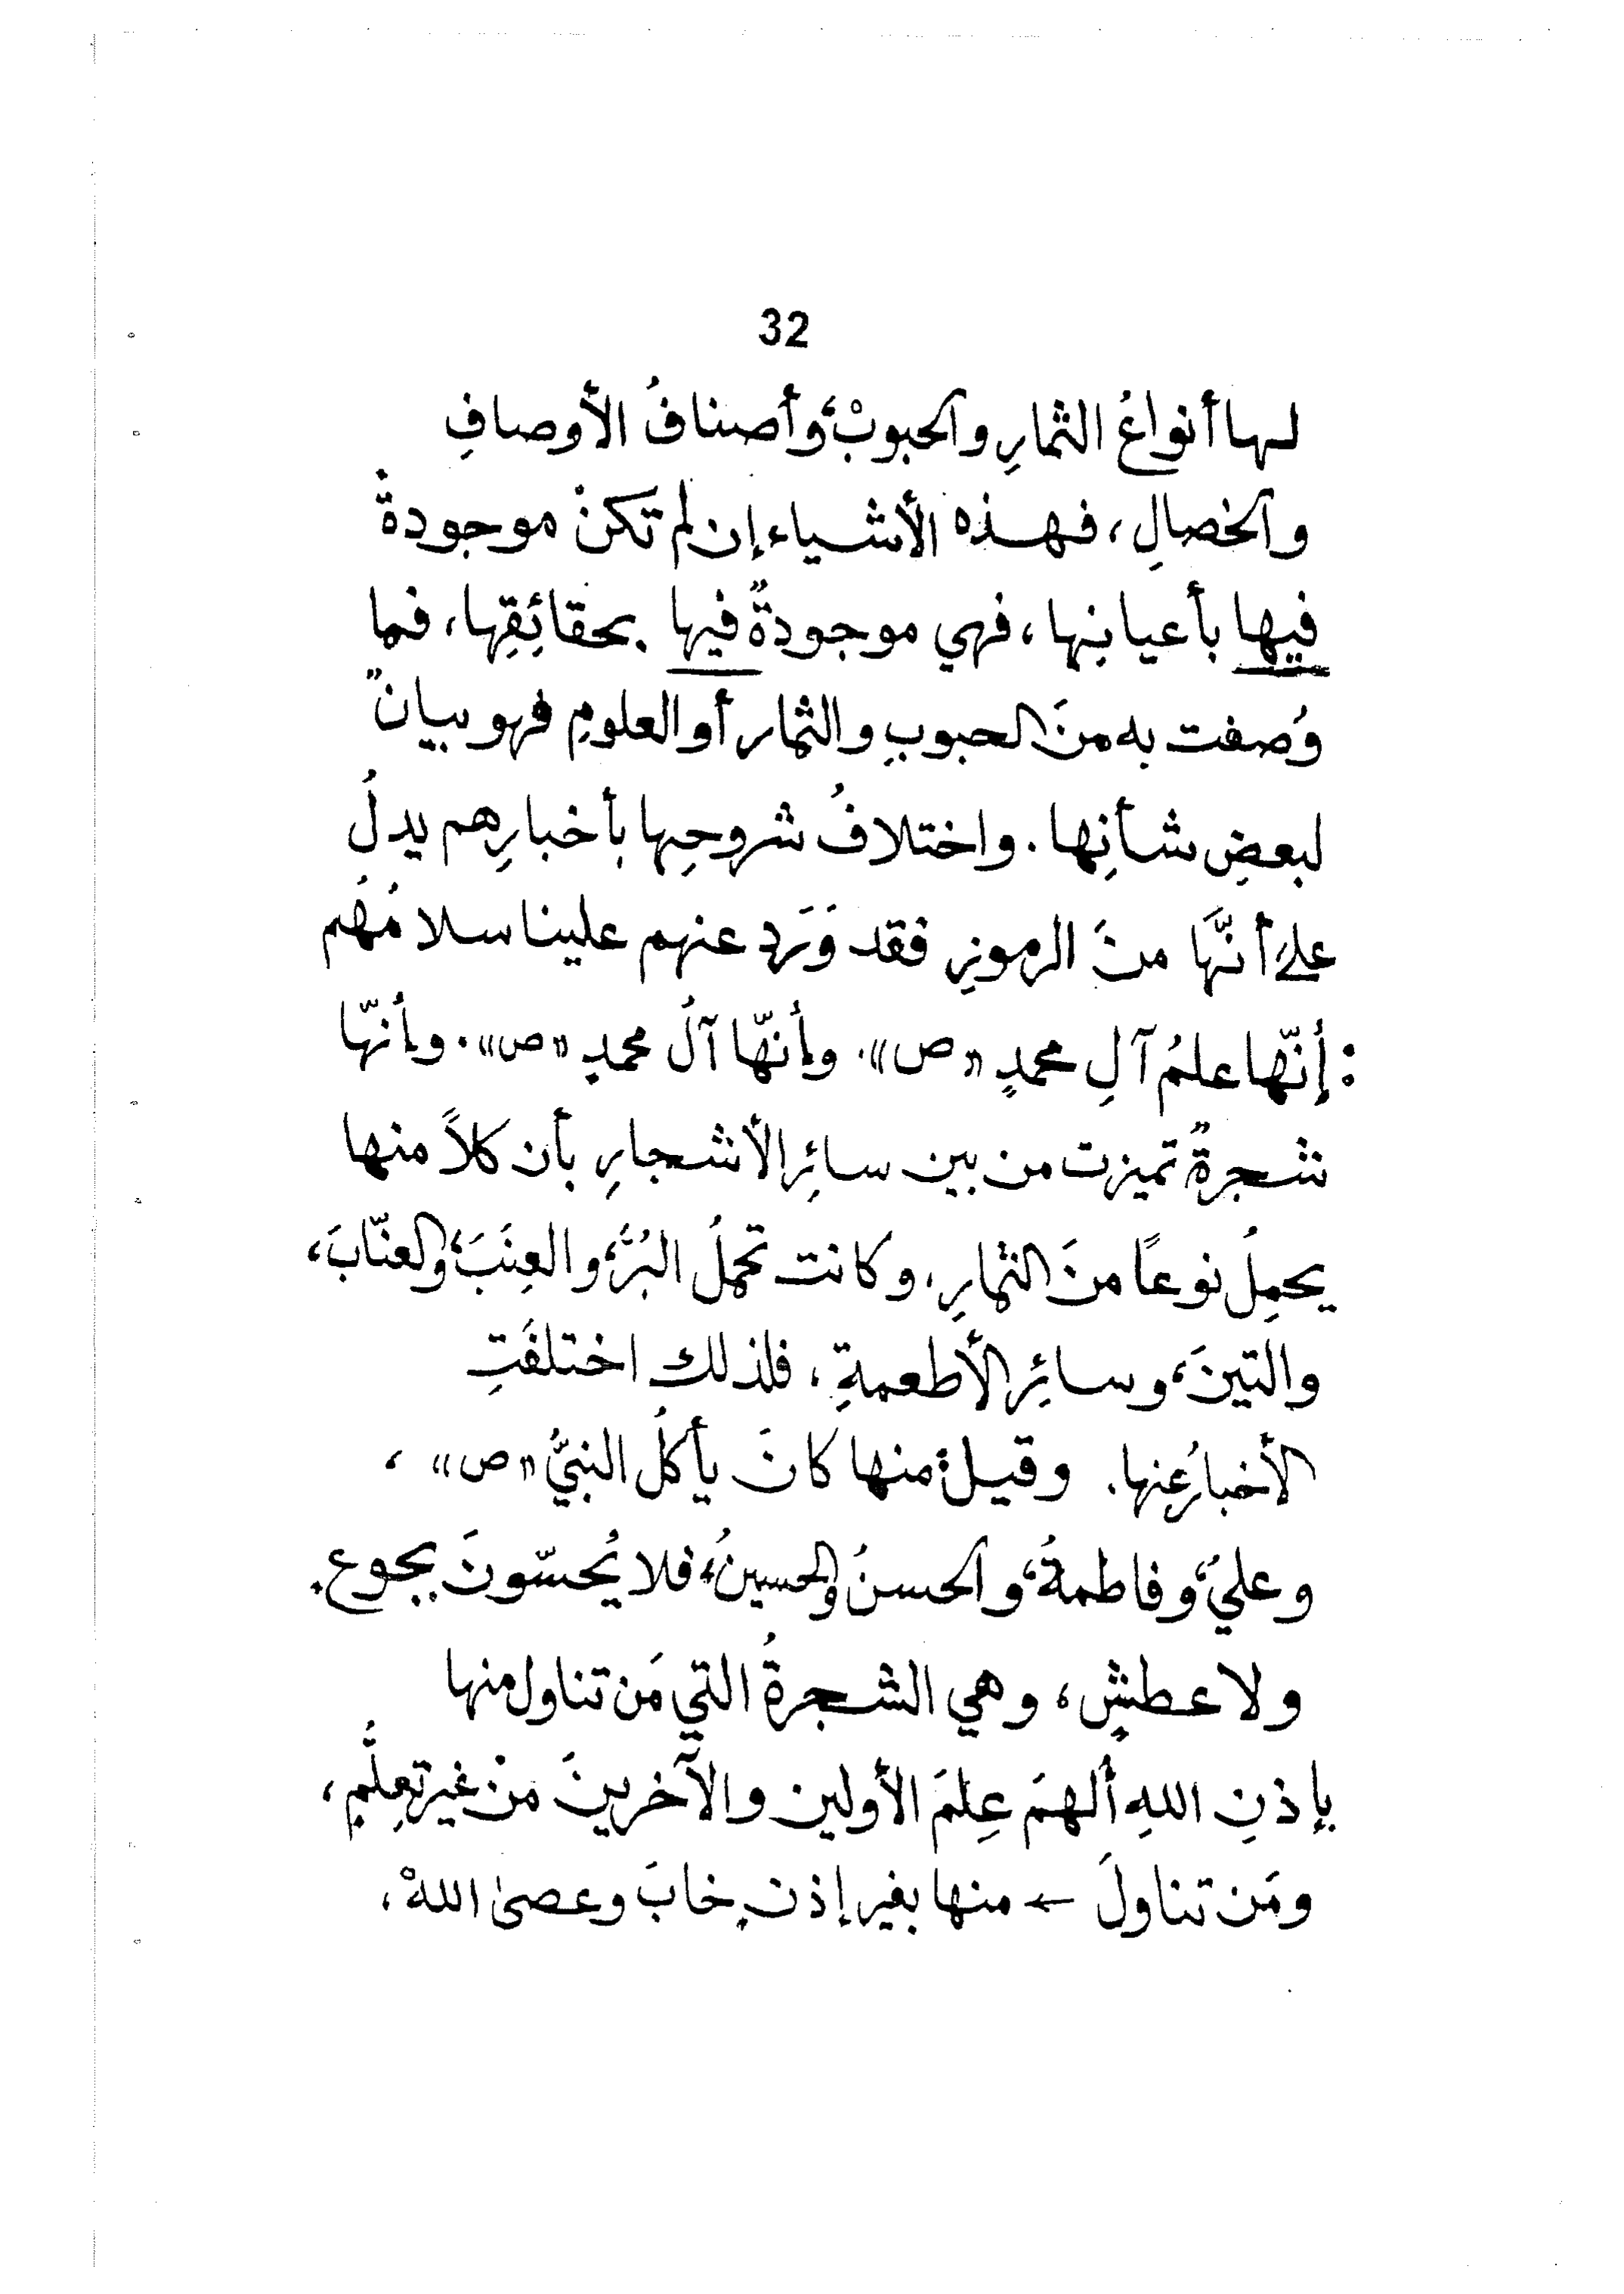 32
لها أنواعُ الثمارِ والحبوبْ، وأصنافُ الأوصافِ
والخصالِ، فهذه الأشياء إن لم تكنْ موجودةً
فيها بأعيانِها، فهي موجودةٌ فيها بحقائِقِها، فما
وُصفت به منَ الحبوبِ والثمار أو العلومِ فهو بيانٌ
لبعضِ شأنِها. واختلافُ شروحِها بأخبارِهم يدلُ
علىٰ أنَّها منَ الرموزِ فقد وَرَد عنهم علينا سلامُهُم
: إنّها علمُ آلِ محمدٍ «ص». وأنّها آلُ محمدٍ «ص». وأنّها
شجرةٌ تميزت من بين سائِرِ الأشجارِ بأن كلاً منها
يحمِلُ نوعاً منَ الثمارِ. وكانت تحملُ البُرَّ، والعِنَبَ، والعنّابَ،
والتينَ، وسائِرِ الأطعمةِ، فلذلك اختلفَتِ
الأخبارُ عنها. وقيلَ: منها كانَ يأكلُ النبيُّ «ص»،
وعليٌ، وفاطمةُ، والحسنُ والحسينُ، فلا يُحسّونَ بجوعٍ
ولا عطشٍ، وهي الشجرةُ التي مَن تناول منها
بإذنِ اللهِ أُلهمَ عِلمَ الأولين والآخرينَ منْ غير تعلُّمٍ،
ومَن تناولَ ← منها بغير إذنٍ خابَ وعصىٰ اللهْ،